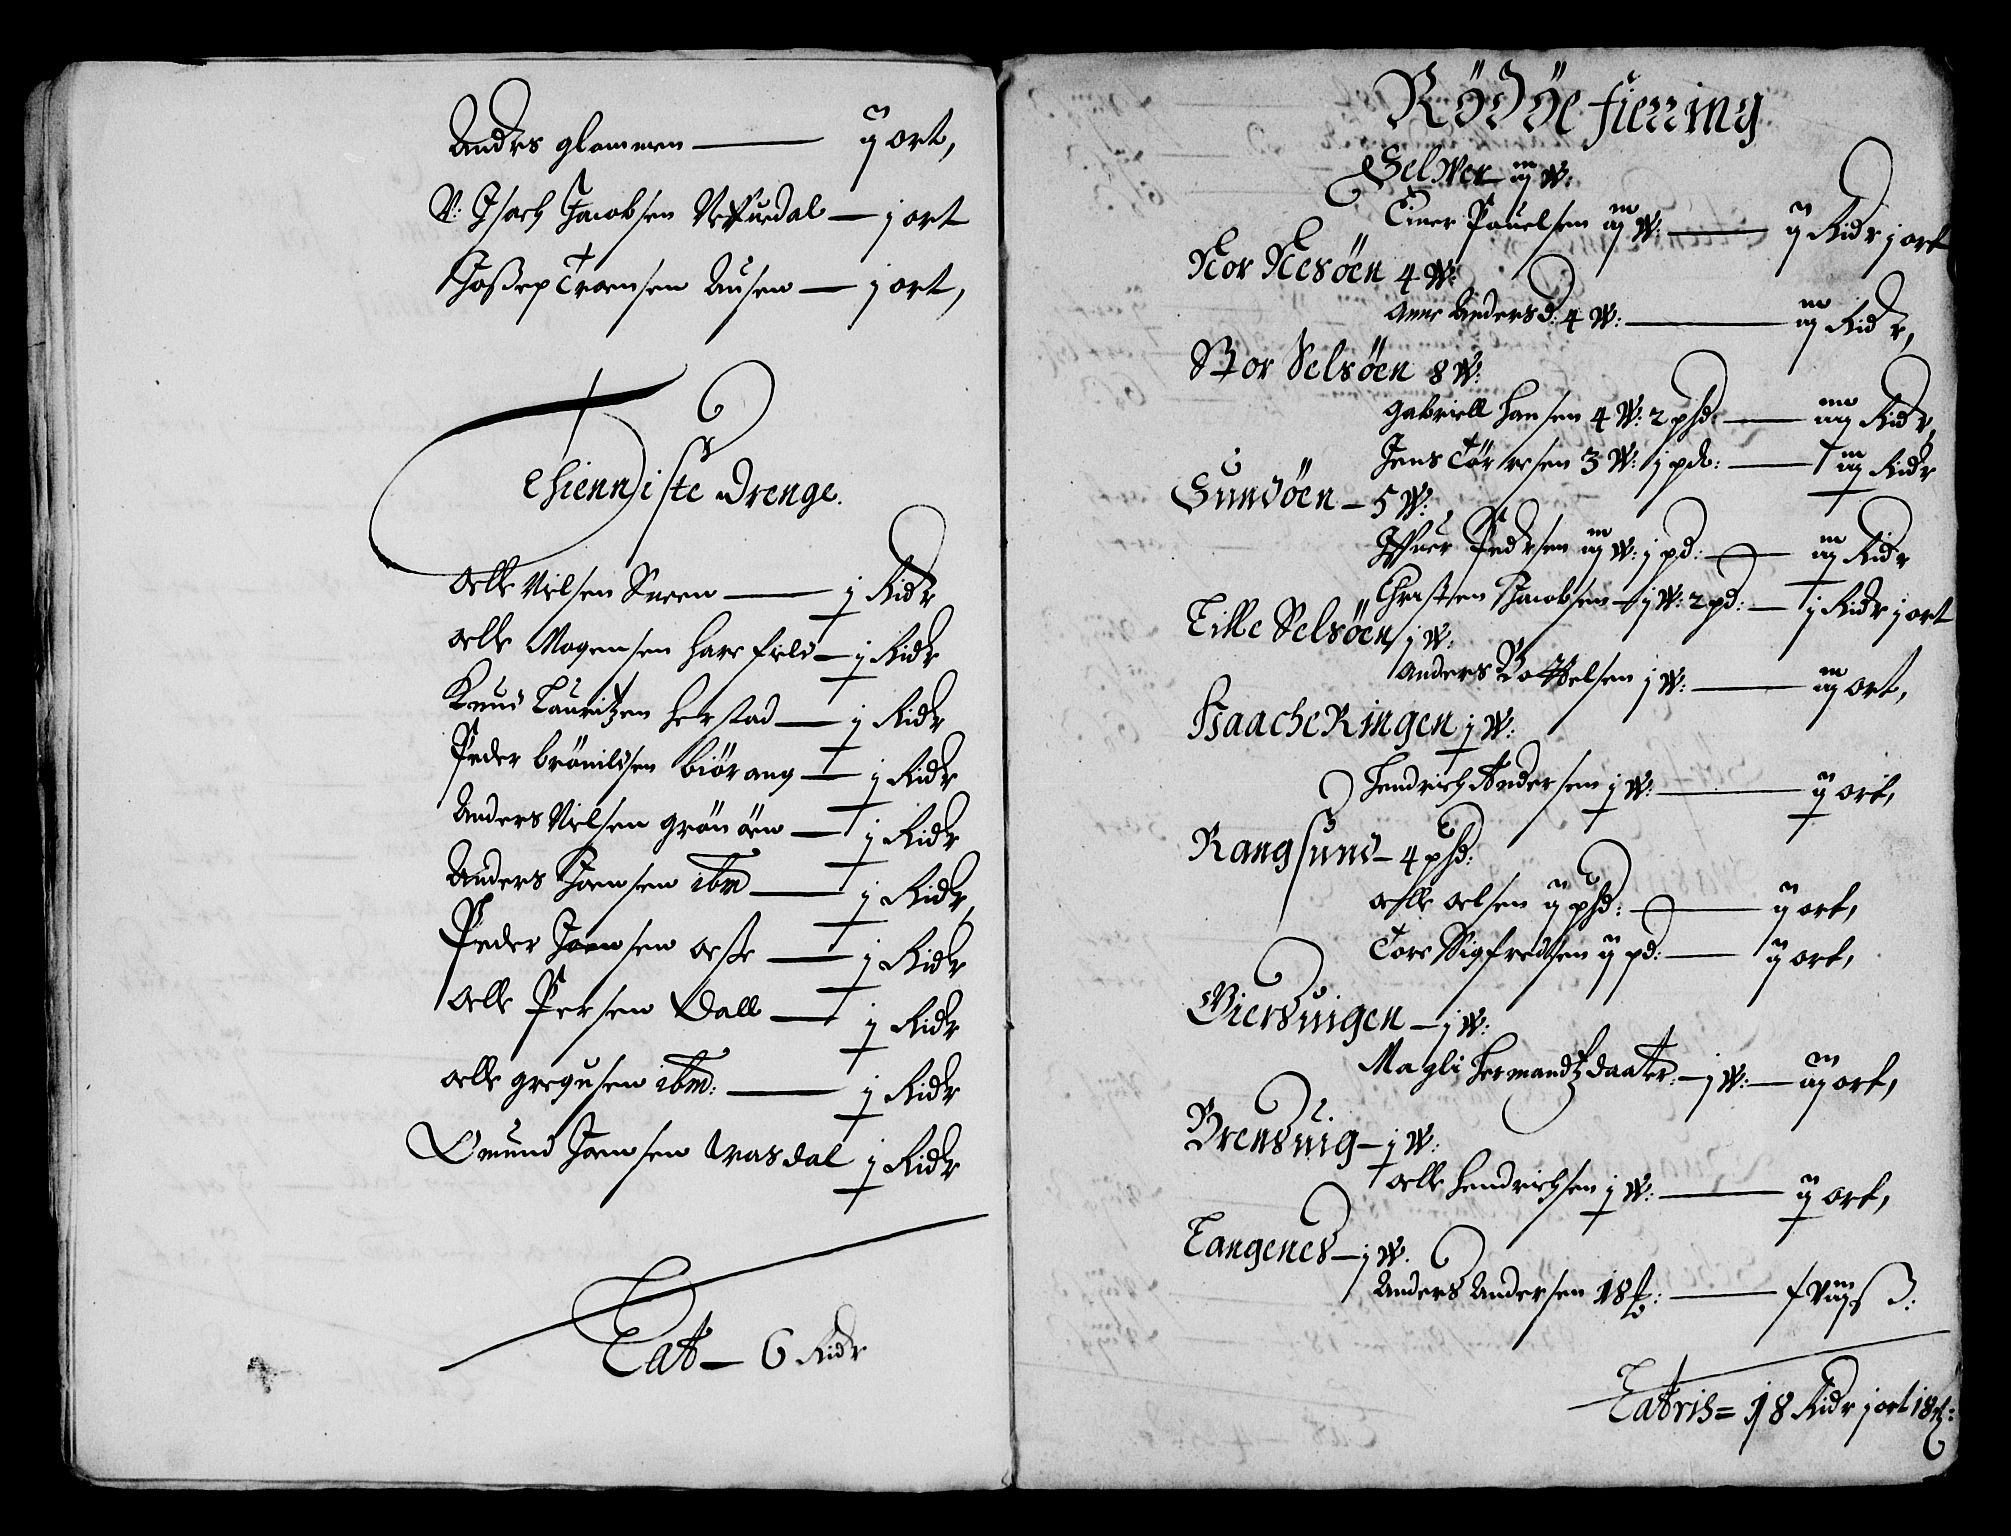 Anders glommen — ij ort,
N: Isach Jacobsen Neffuerdal — j ort
Joßep Troensen Ausen — j ort,
Thienniste Drenge.
Olle Nielsen Sneen — j Ridr
Olle Mogensen harefield — j Ridr
Knud Lauritzen herstad — j Ridr
Peder brönildsen biörang — j Ridr
Anders Nielsen grönöen — j Ridr
Anders Joensen ibm — j Ridr,
Peder Joensen oeste — j Ridr
Olle Persen Dall — j Ridr
Olle gregusen ibm: — j Ridr
Omund Joensen trasdal j Ridr
Lat — 6 Ridr
Rödöe fierring
Selwer iij W:
Einer Pouelsen iij W: — ij Ridr j ort
Nor Nesöen 4 W:
Anne Andersd: 4 W: — iij Ridr,
Stor Selsöen 8 W:
Gabriell hansen 4 W: 2 psd: — iiij Ridr,
Jens Törresen 3 W: j pd: — iij Ridr
Sundöen — 5 W:
Iffuer Pedersen iij W: j pd: — iij Ridr
Christen Jacobsen — j W: 2 pd: — j Ridr j ort
Lille Selsöen j W:
Anders Bottelsen j W: — iij ort,
Haacheringen j W:
Hendrich Andersen j W: — ij ort,
Rangsund — 4 psd:
Olle Olsen ij psd: — ij ort,
Tore Sigfredsen ij pd: — ij ort,
Giersuigen — j W:
Magli hermandtzdaatter: — j W: — iij ort,
Brensuig — j W:
Olle hendrichsen j W: — ij ort,
Langenes — j W.
Anders Andersen 18 — ß:
Latris = 18 Ridr j ort 18